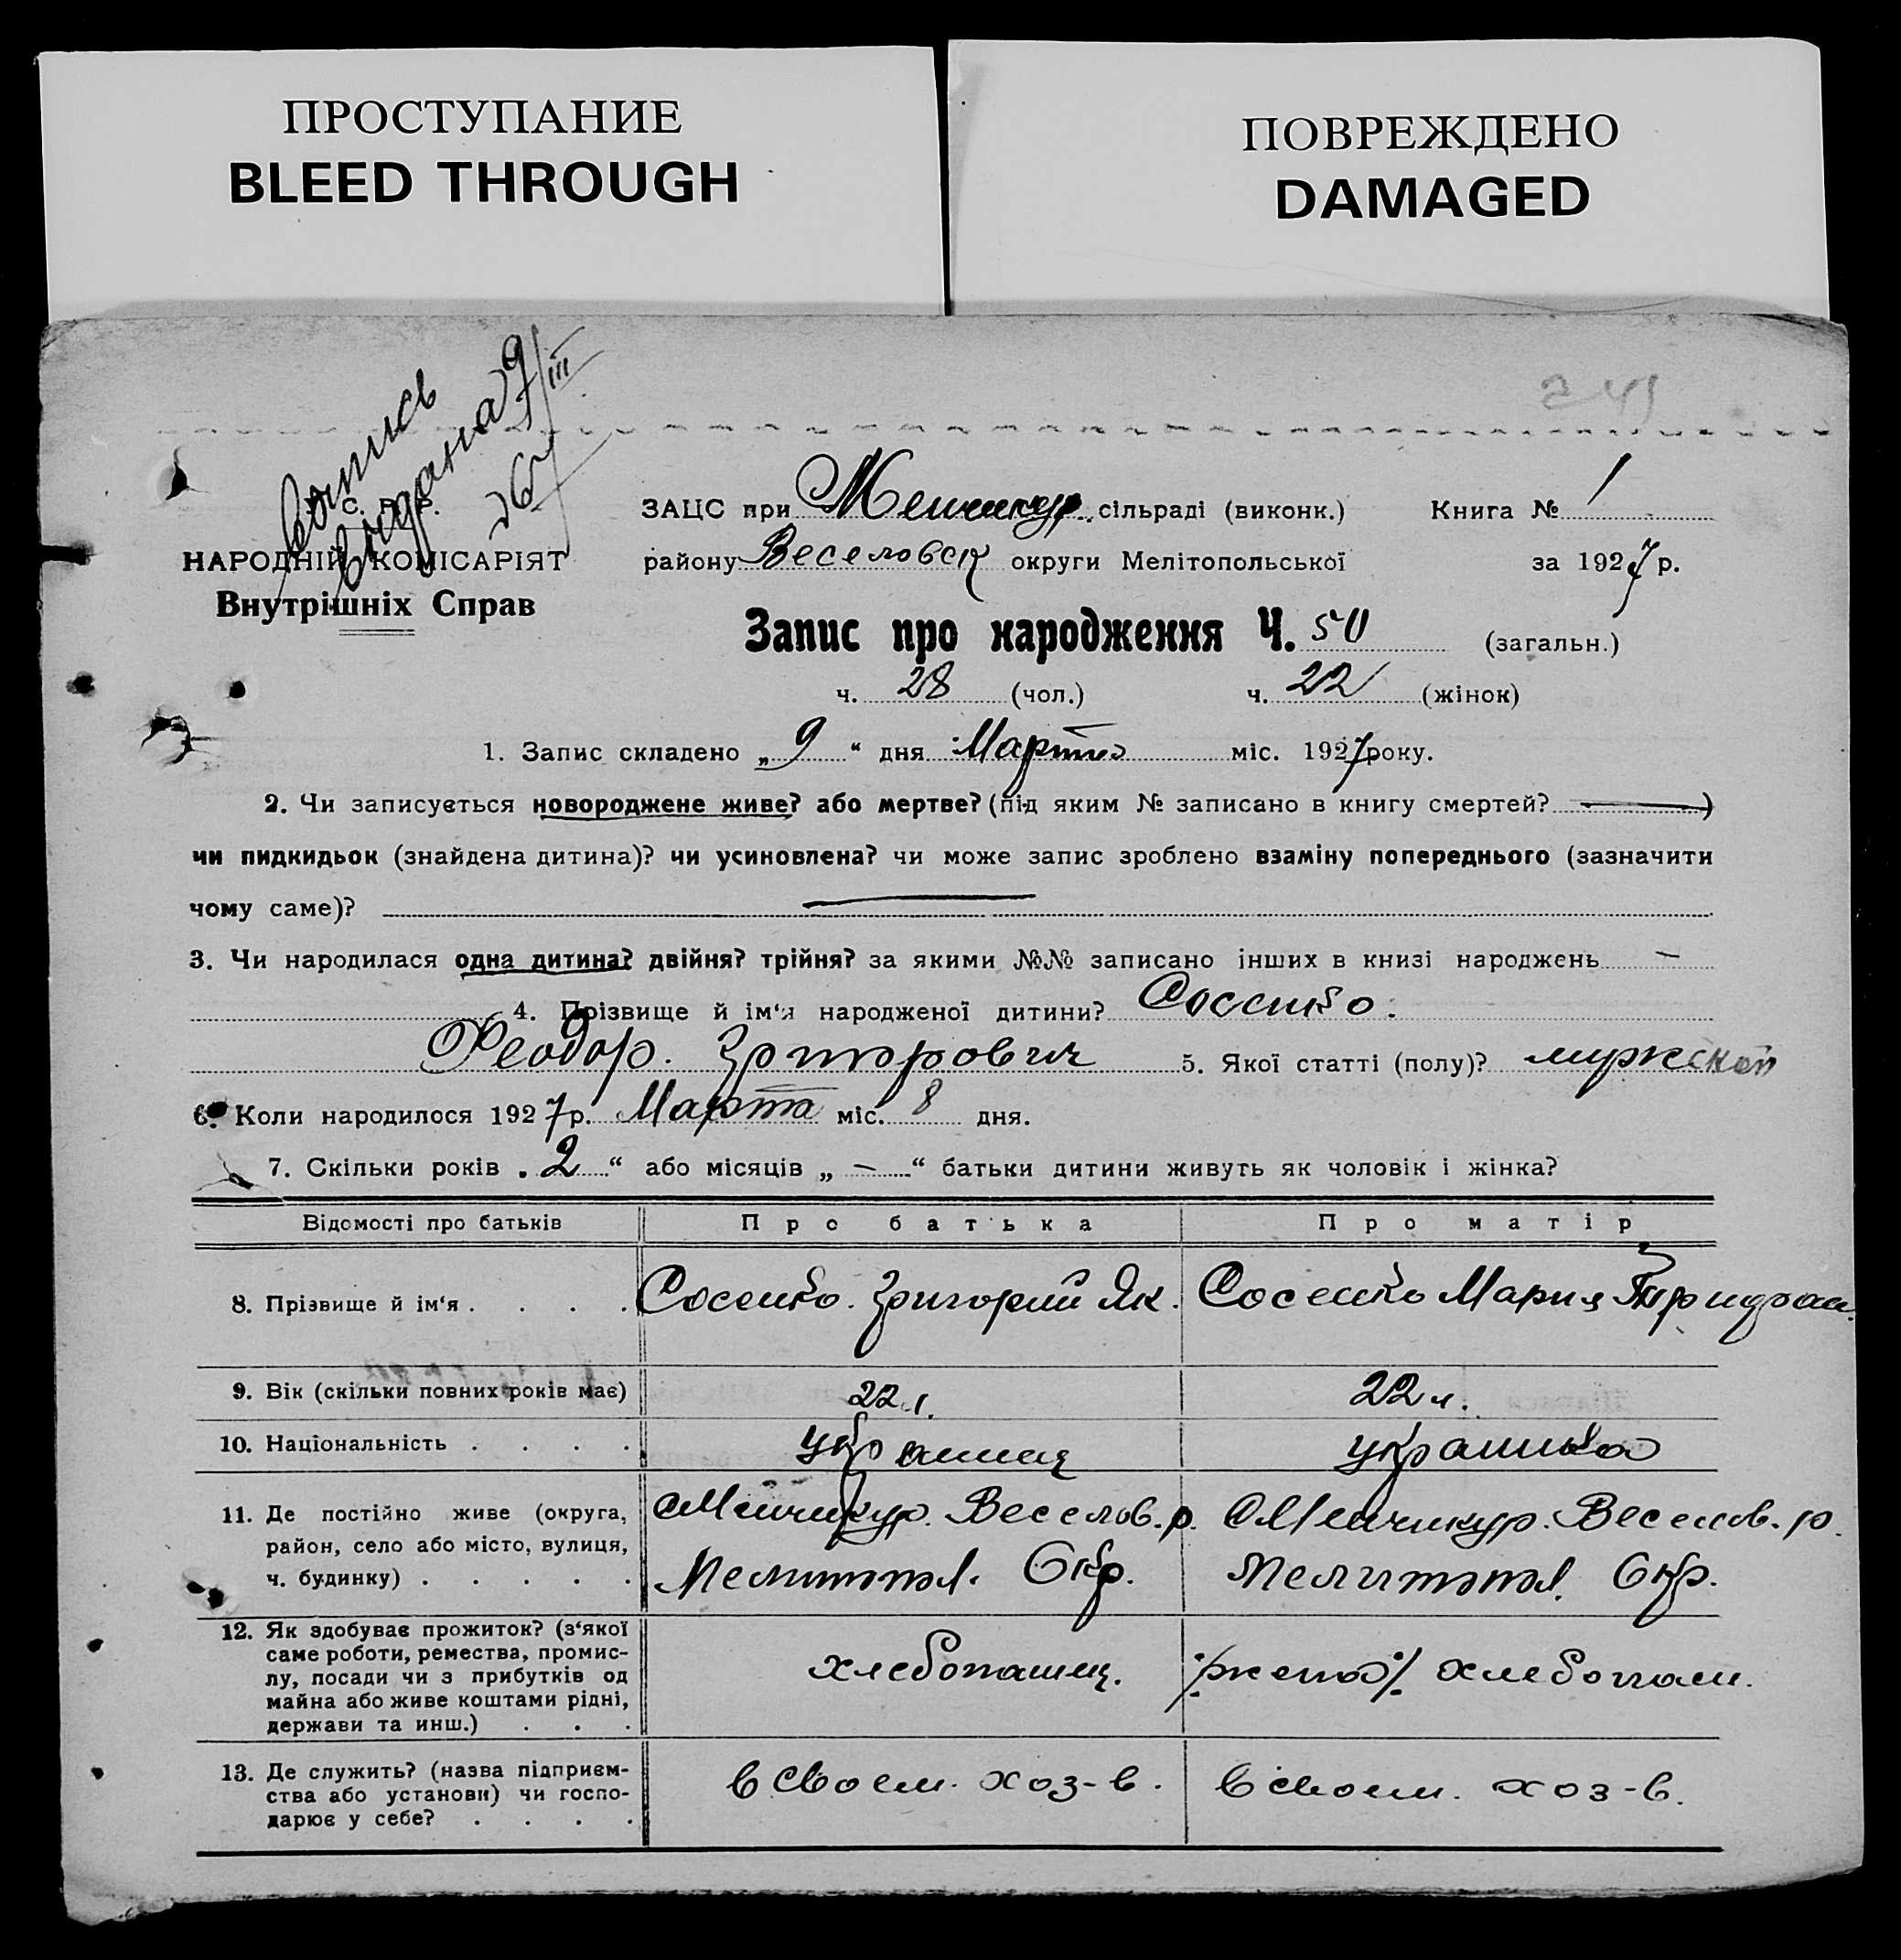 ПРОСТУПАНИЕ
BLEED THROUGH
ПОВРЕЖДЕНО
DAMAGED
выпись
выдана 9/III
С. Р. Р.
НАРОДНІЙ КОМІСАРІЯТ
Внутрішніх Справ
ЗАЦС при Менчикур. сільраді (виконк.) Книга № 1
району Веселовск округи Мелітопольської за 1927 р.
Запис про народження Ч. 50 (загальн.)
ч. 28 (чол.) ч. 22 (жінок)
1. Запис складено „ 9 “ дня Марта міс. 1927 року.
2. Чи записується новороджене живе? або мертве? (під яким № записано в книгу смертей? — )
чи пидкидьок (знайдена дитина)? чи усиновлена? чи може запис зроблено взаміну попереднього (зазначити
чому саме)? —
3. Чи народилася одна дитина? двійня? трійня? за якими №№ записано інших в книзі народжень —
4. Прізвище й ім‘я народженої дитини? Сосенко.
Феодор. 5. Якої статті (полу)? мужской
6. Коли народилося 1927 р. Марта міс. 8 дня.
7. Скільки років „ 2 “ або місяців „ — “ батьки дитини живуть як чоловік і жінка?
Відомості про батьків Про батька Про матір
8. Прізвище й ім‘я . . . . Сосенко. Григорий Як. Сосенко Мария
9. Вік (скільки повних років має) 22 л. 22 л.
10. Національність . . . . украинец украинка
11. Де постійно живе (округа, район, село або місто, вулиця, ч. будинку) . . . . .
Менчикур. Веселов. р. Менчикур. Веселов. р.
Мелитопол. Окр. Мелитопол. Окр.
12. Як здобуває прожиток? (з‘якої
саме роботи, ремества, промис-
лу, посади чи з прибутків од
майна або живе коштами рідні,
держави та инш.) . . .
хлебопашец. /жена/ хлебопаш.
13. Де служить? (назва підприєм-
ства або установи) чи госпо-
дарює у себе? . . . .
в своем. хоз-в. в своем. хоз-в.